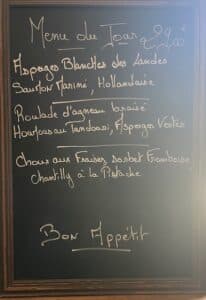 Menu du Jour 22€
Asperges Blanches des Landes
Saumon Mariné, Hollandaise
Roulade d'agneau braisé
Houmous au Tandoori, Asperges Vertes
Choux aux Fraises, sorbet Framboise,
Chantilly à la Pistache
Bon Appétit